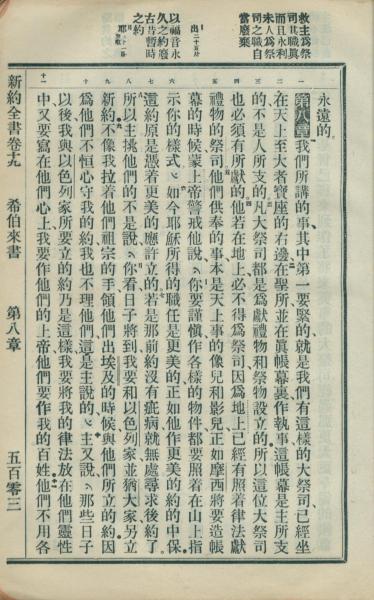 救主爲祭
司其職眞
而且永利
未人爲祭
司之職自
當廢棄
出二十五章四十
以福音永
久之約廢
古昔暫時
之約
耶三十一章
永遠的
第八章我們所講的事其中第一要緊的就是我們有這樣的大祭司已經坐
在天上至大者寶座的右邊在聖所並在眞帳幕裏作執事這帳幕是主所支
的不是人所支的凡大祭司都是爲獻禮物和祭物設立的所以這位大祭司
也必須有所獻的他若在地上必不得爲祭司因爲地上已經有照着律法獻
禮物的祭司他們供奉的事本是天上事的像兒和影兒正如摩西將要造帳
幕的時候蒙上帝警戒他說你要謹愼作各樣的物件都要照着在山上指
示你的樣式如今耶穌所得的職任是更美的正如他作更美的約的中保
這約原是憑着更美的應許立的若是那前約沒有疵病就無處尋求後約了
所以主挑他們的不是說你看日子將到我要和以色列家並猶大家另立
新約不像我拉着他們祖宗的手領他們出埃及的時候與他們所立的約因
爲他們不恒心守我的約我也不理他們這是主說的主又說那些日子
以後我與以色列家所要立的約乃是這樣我要將我的律法放在他們靈性
中又要寫在他們心上我要作他們的上帝他們要作我的百姓他們不用各
一
二
三
四
五
六
七
八
九
十
十一
新約全書卷十九 希伯來書 第八章 五百零三